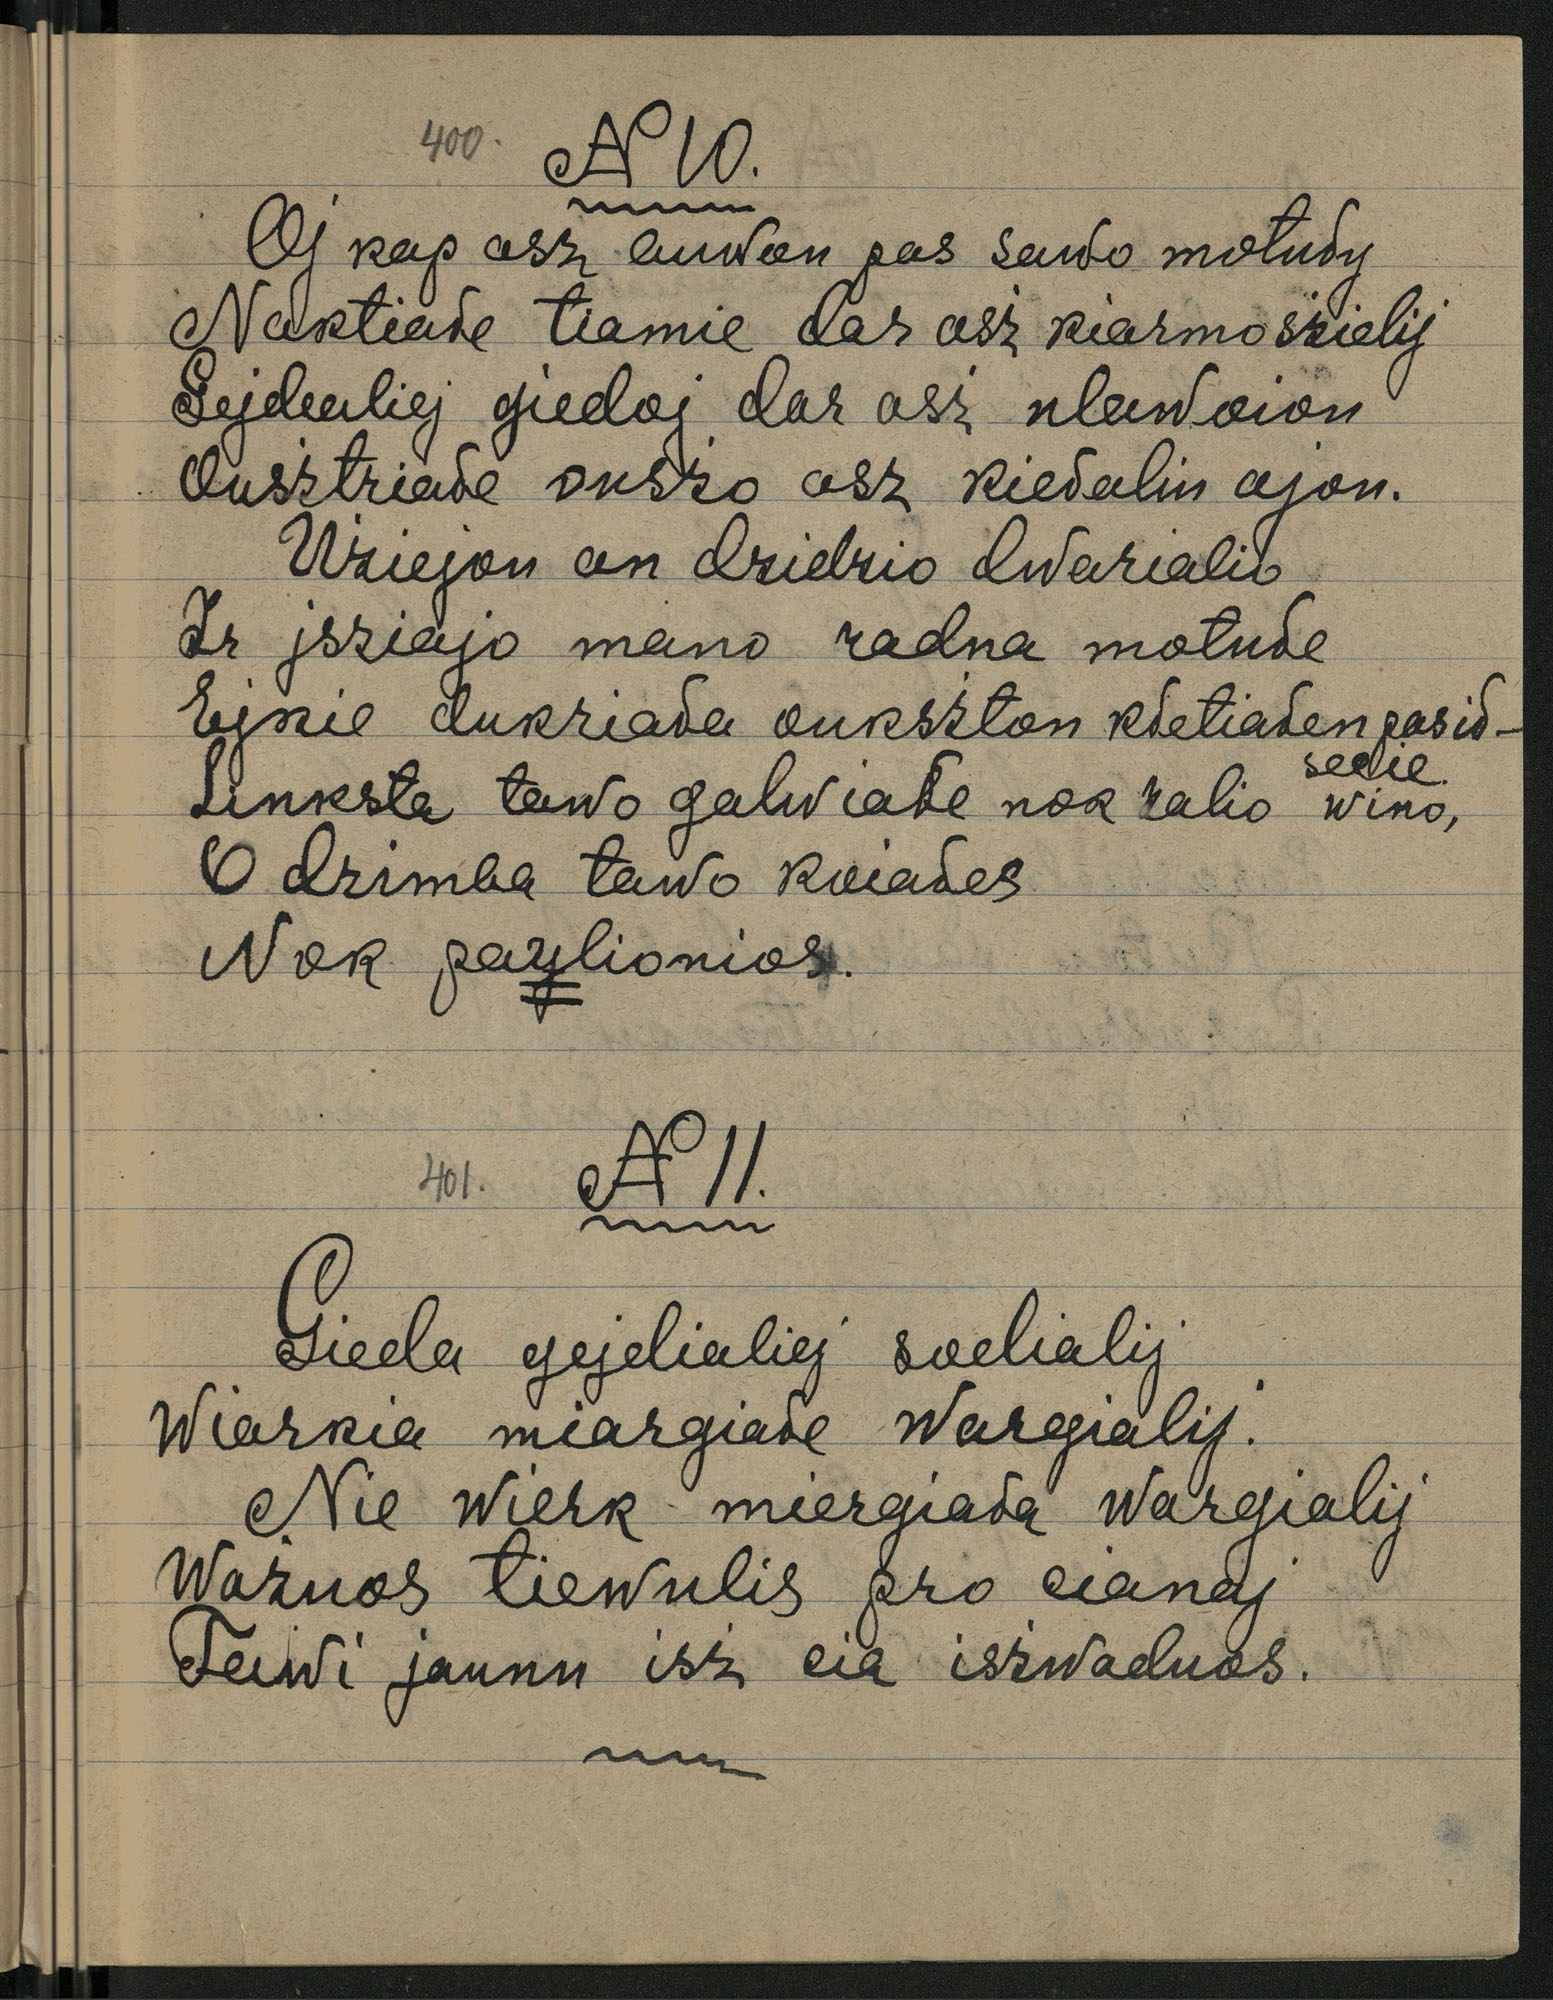 400. № 10.
Oj kap asz buwau pas sawo motuły
Naktiałe tiamie dar asż kiarmoszielij
Gejdealiej giedoj dar asż ulawoion
Ausżtriałe auszo asz kiełalin ajon.
Użiejon an dzidzio dwarialio
Ir jsziajo mano radna motułe
Ejkie dukriała aukszton kłetiałen pasił-
secie.
Linksta tawo galwiałe nok żalio wino,
O dzimba tawo koiałes
Nok paylionios.
401. № 11.
Gieda gejdialiej sodialij
Wiarkia miargiałe Wargialij.
Nie wierk miergiała wargialij
Ważuos tiewulis pro cianaj
Tawi jaunu isż cia isżwaduos.